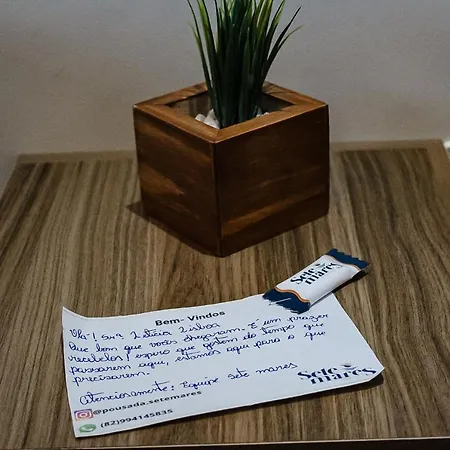 Sete
mares
Bem-Vindos
Olá! Sra Letícia Lisboa
Que bom que vocês chegaram. É um prazer
recebelos! espero que gostem do tempo que
passarem aqui, estamos aqui para o que
precisarem.
Atenciosamente: Equipe sete mares
@pousada.setemares
(82)994145835
Sete
mares